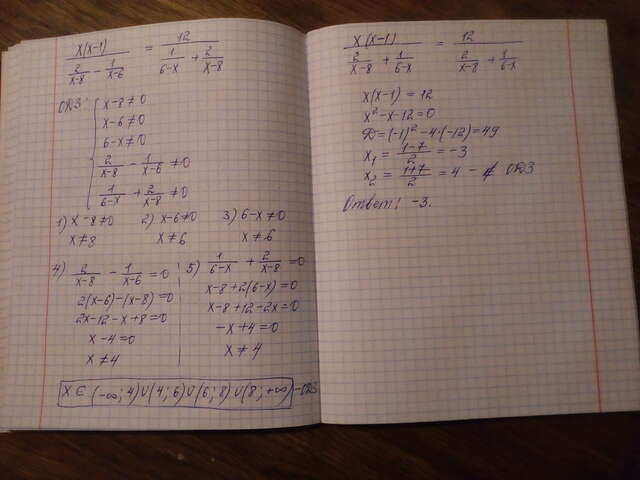 x(x-1) / (2/(x-8) - 1/(x-6)) = 12 / (1/(6-x) + 2/(x-8))
ОДЗ: { x-8≠0
x-6≠0
6-x≠0
2/(x-8) - 1/(x-6) ≠0
1/(6-x) + 2/(x-8) ≠0
1) x-8≠0 2) x-6≠0 3) 6-x≠0
x≠8 x≠6 x≠6
4) 2/(x-8) - 1/(x-6) =0
2(x-6)-(x-8)=0
2x-12-x+8=0
x-4=0
x≠4
5) 1/(6-x) + 2/(x-8) =0
x-8+2(6-x)=0
x-8+12-2x=0
-x+4=0
x≠4
x∈(-∞;4)∪(4;6)∪(6;8)∪(8;+∞)-ОДЗ
x(x-1) / (2/(x-8) + 1/(6-x)) = 12 / (2/(x-8) + 1/(6-x))
x(x-1)=12
x²-x-12=0
D=(-1)²-4·(-12)=49
x₁=(1-7)/2=-3
x₂=(1+7)/2=4 - ∉ ОДЗ
Ответ: -3.